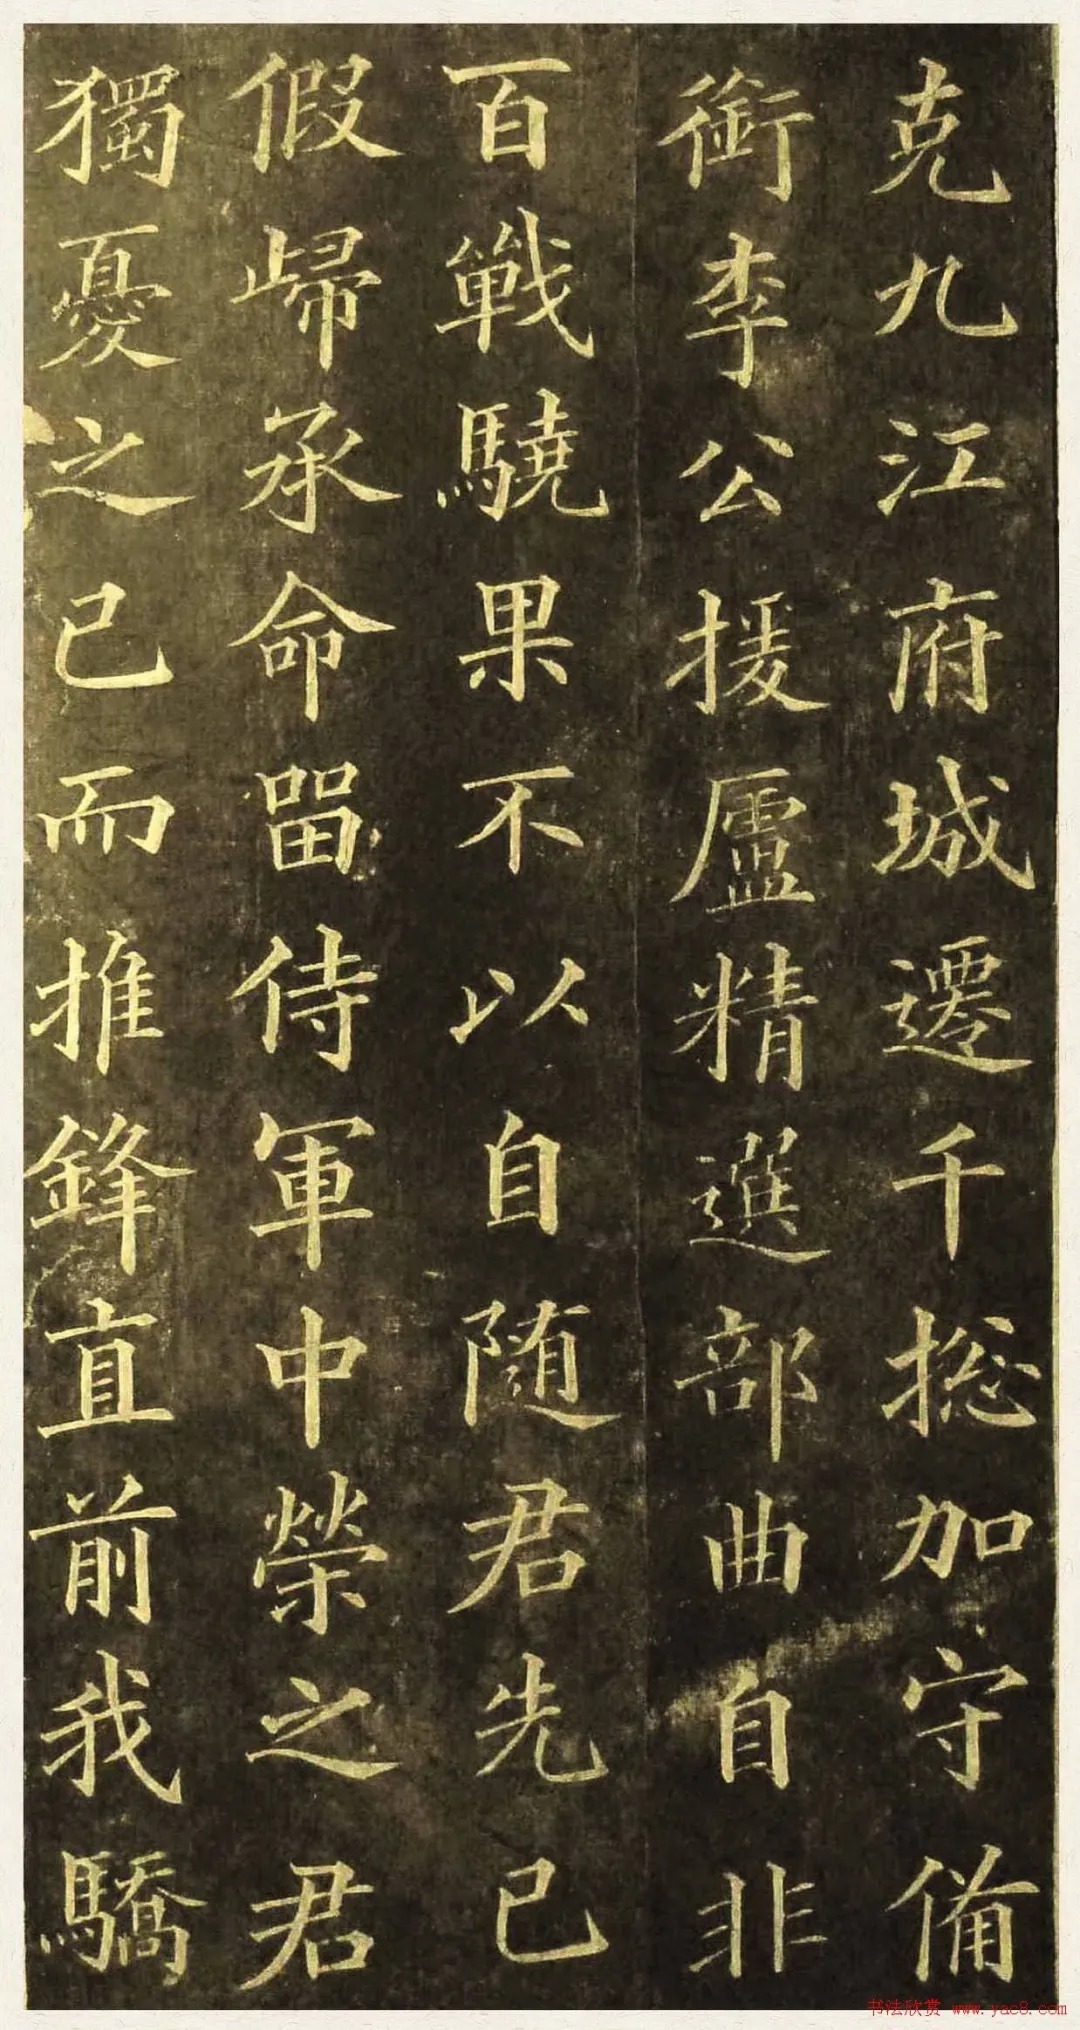 克九江府城遷千摠加守備
銜李公援廬精選部曲自非
百戰驍果不以自随君先已
假歸承命畱侍軍中榮之君
獨憂之已而推鋒直前我驕
书法欣赏 www.yac8.com